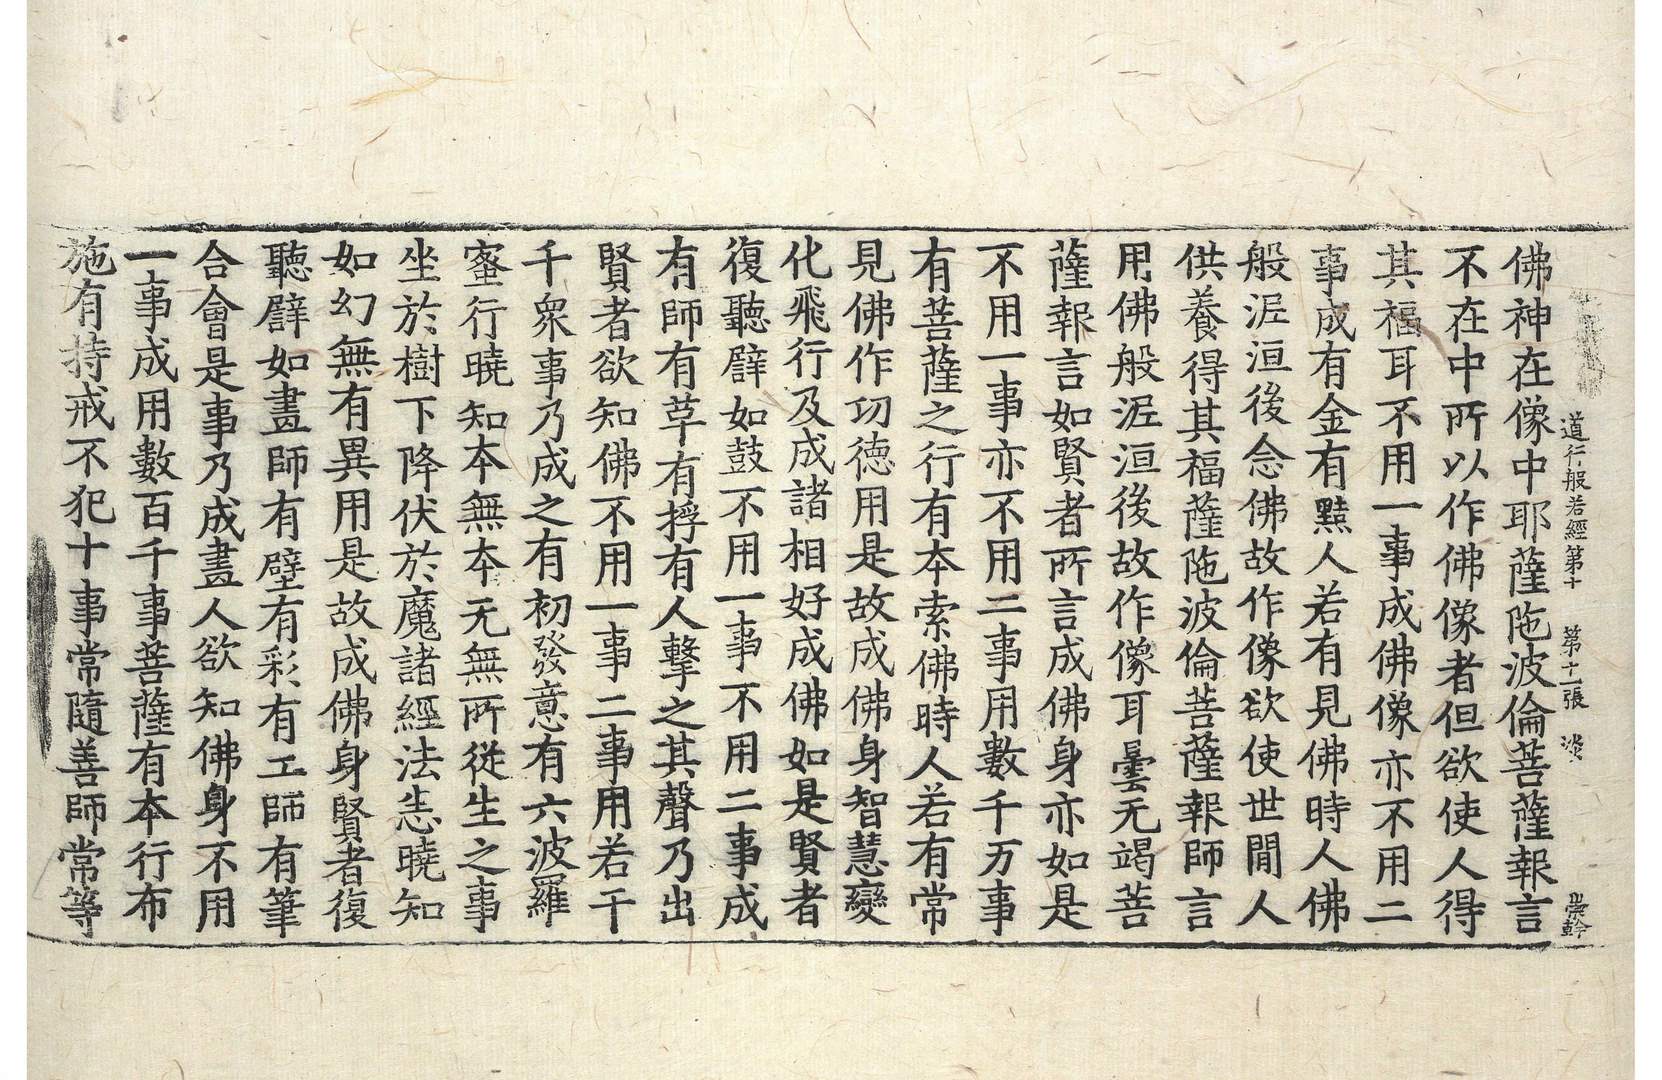 道行般若經第十 第十一張 淡
佛神在像中耶薩陁波倫菩薩報言
不在中所以作佛像者但欲使人得
其福耳不用一事成佛像亦不用二
事成有金有黠人若有見佛時人佛
般泥洹後念佛故作像欲使世閒人
供養得其福薩陁波倫菩薩報師言
用佛般泥洹後故作像耳曇无竭菩
薩報言如賢者所言成佛身亦如是
不用一事亦不用二事用數千万事
有菩薩之行有本索佛時人若有常
見佛作功德用是故成佛身智慧變
化飛行及成諸相好成佛如是賢者
復聽譬如鼓不用一事不用二事成
有師有革有桴有人擊之其聲乃出
賢者欲知佛不用一事二事用若干
千衆事乃成之有初發意有六波羅
蜜行曉知本無本无無所從生之事
坐於樹下降伏於魔諸經法悉曉知
如幻無有異用是故成佛身賢者復
聽譬如畫師有壁有彩有工師有筆
合會是事乃成畫人欲知佛身不用
一事成用數百千事菩薩有本行布
施有持戒不犯十事常隨善師常等